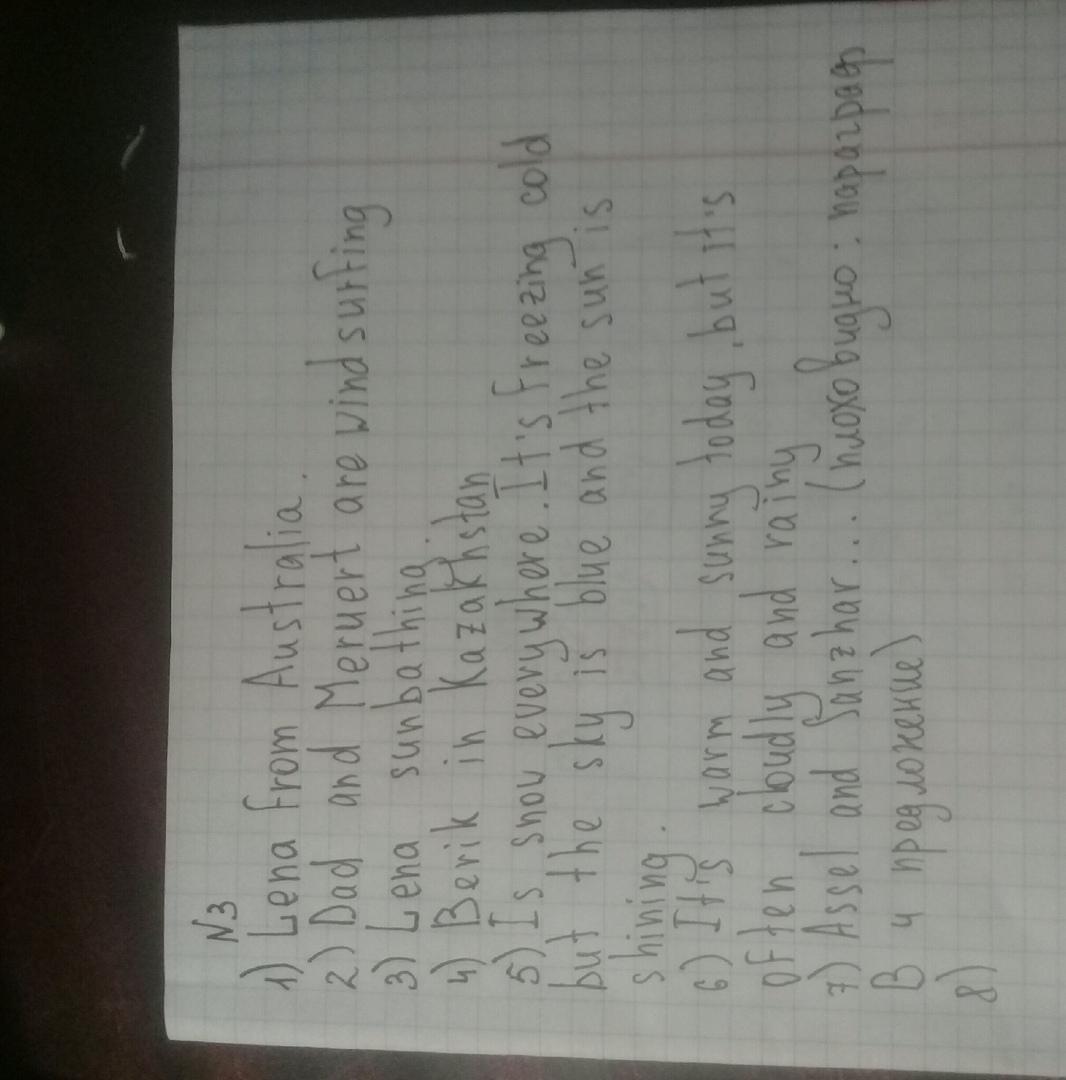 N3
1) Lena from Australia.
2) Dad and Meruert are windsurfing
3) Lena sunbathing
4) Berik in Kazakhstan
5) Is snow everywhere. It's freezing cold
but the sky is blue and the sun is
shining.
6) It's warm and sunny today, but it's
often cloudly and rainy
7) Assel and Sanzhar... (плохо видно: параграф
В 4 предложение)
8)